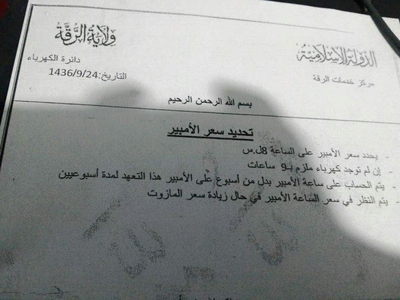 الدولة الإسلامية
ولاية الرقة
مركز خدمات الرقة
دائرة الكهرباء
التاريخ:1436/9/24
بسم الله الرحمن الرحيم
تحديد سعر الأمبير
- يحدد سعر الأمبير على الساعة 8ل.س
- إن لم توجد كهرباء ملزم بـ9 ساعات
- يتم الحساب على ساعة الأمبير بدل من أسبوع على الأمبير هذا التعهد لمدة أسبوعين
- يتم النظر في سعر الساعة الأمبير في حال زيادة سعر المازوت